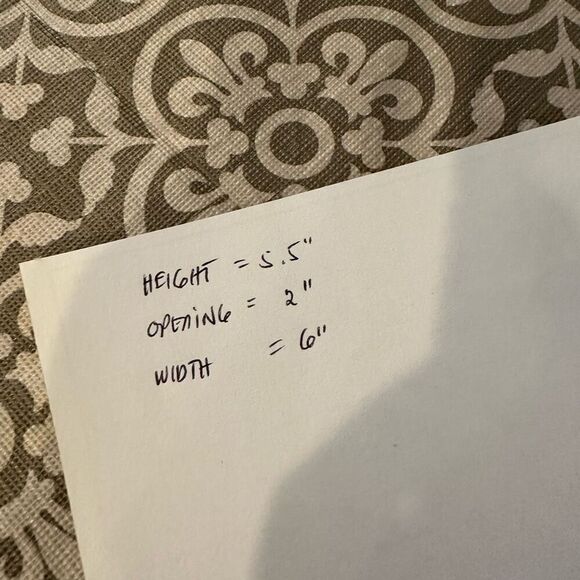 HEIGHT = 5.5"
OPENING = 2"
WIDTH = 6"